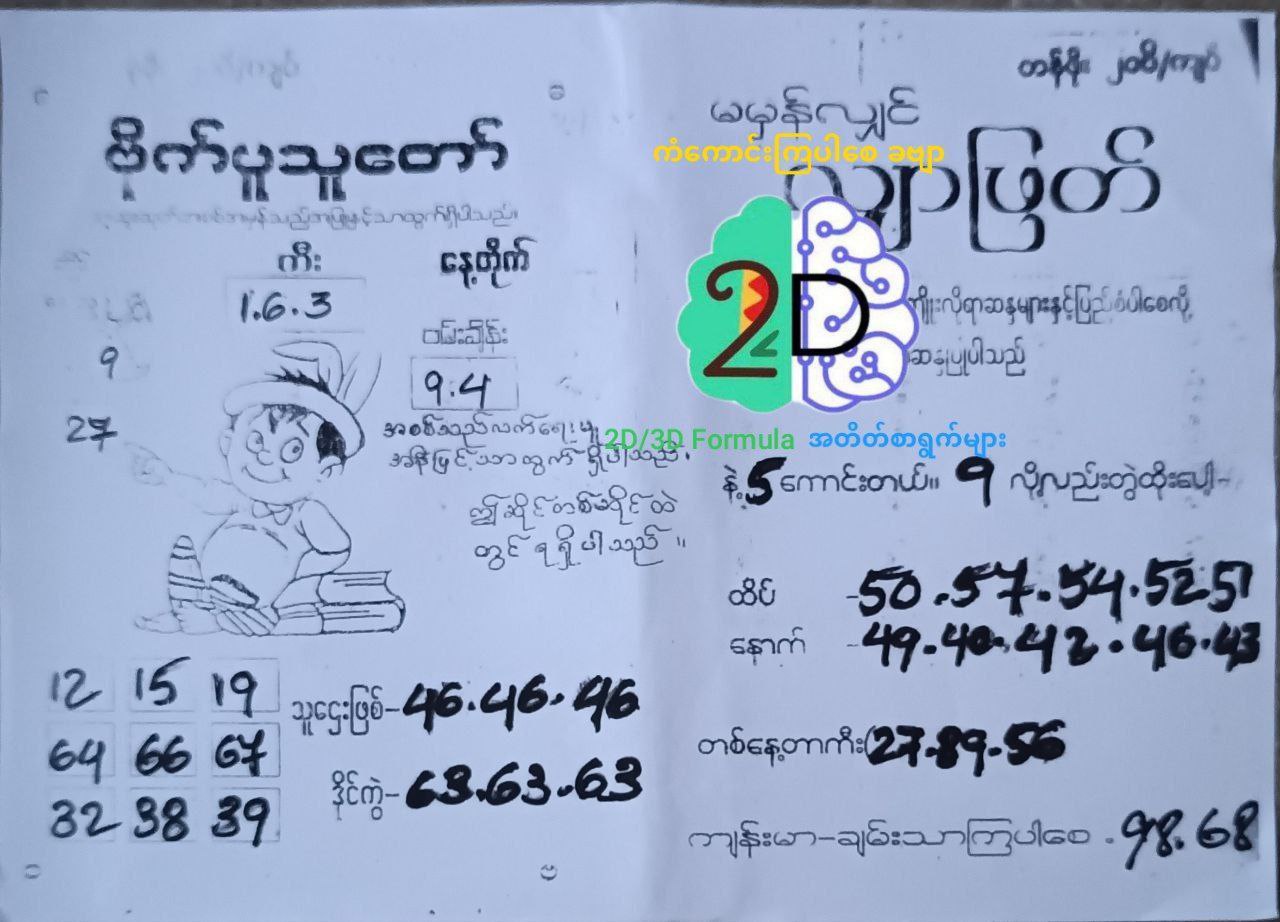 တန်ဖိုး ၂၀၀ိ/ကျပ်
ဗိုက်ပူသူတော်
ကီး
နေ့တိုက်
1.6.3
ဝမ်းချိန်း
9
9.4
27
အစစ်သည်လက်ရေးမူ
အနီဖြင့်သာထွက်ရှိပါသည်.
ဤဆိုင်တစ်ဆိုင်ထဲ
တွင် ရရှိပါသည် ။
12 15 19
64 66 67
32 38 39
သူဌေးဖြစ်-46.46.46
ဒိုင်ကွဲ-63.63.63
မမှန်လျှင်
ကံကောင်းကြပါစေ ခဗျာ
လျှာဖြတ်
2D
ကျိုးလိုရာဆန္ဒများနှင့်ပြည့်စုံပါစေလို့
ဆန္ဒပြုပါသည်
2D/3D Formula အတိတ်စာရွက်များ
နဲ့ 5 ကောင်းတယ်။ 9 လို့လည်းတွဲထိုးပေါ့-
ထိပ် -50.57.54.52.51
နောက် -49.40.42.46.43
တစ်နေ့တာကီး(27.89.56
ကျန်းမာ-ချမ်းသာကြပါစေ . 98.68